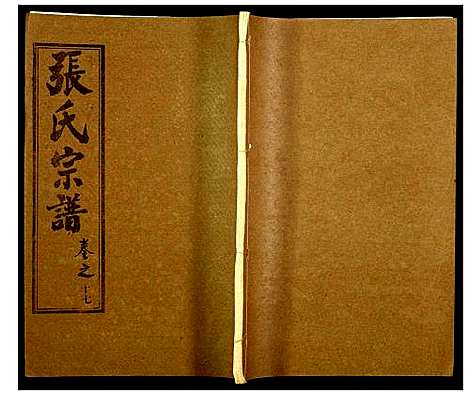 張氏宗譜
卷之十七